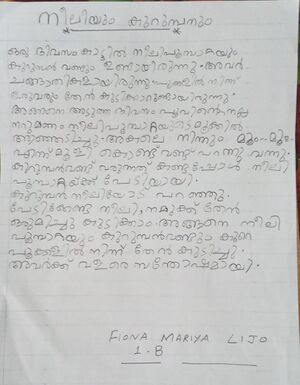 നീലിയും കുറുമ്പനും
ഒരു ദിവസം കാട്ടിൽ നീലിപൂമ്പാറ്റയും
കുറുമ്പൻ വണ്ടും ഉണ്ടായിരുന്നു. അവർ
ചങ്ങാതികളായിരുന്നു. പൂക്കളിൽ നിന്ന്
ഇരുവരും തേൻ കുടിക്കാറുണ്ടായിരുന്നു.
അങ്ങനെ അടുത്ത ദിവസം പൂവിന്റെ നല്ല
നറുമണം നീലിപൂമ്പാറ്റയുടെ മൂക്കിൽ
ആഞ്ഞടിച്ചു. അകലെ നിന്നും മൂളും-മൂളും
എന്ന് മൂളി കൊണ്ട് വണ്ട് പറന്നു വന്നു.
കുറുമ്പൻവണ്ട് വരുന്നത് കണ്ടപ്പോൾ നീലി
പൂമ്പാറ്റയ്ക്ക് പേടിയായി.
കുറുമ്പൻ നീലിയോട് പറഞ്ഞു.
പേടിക്കേണ്ട നീലി, നമുക്ക് തേൻ
ഒരുമിച്ചു കുടിക്കാം. അങ്ങനെ നീലി
പൂമ്പാറ്റയും കുറുമ്പൻവണ്ടും കൂറെ
പൂക്കളിൽ നിന്ന് തേൻ കുടിച്ചു.
അവർക്ക് വളരെ സന്തോഷമായി.
FIONA MARIYA LIJO
1-B